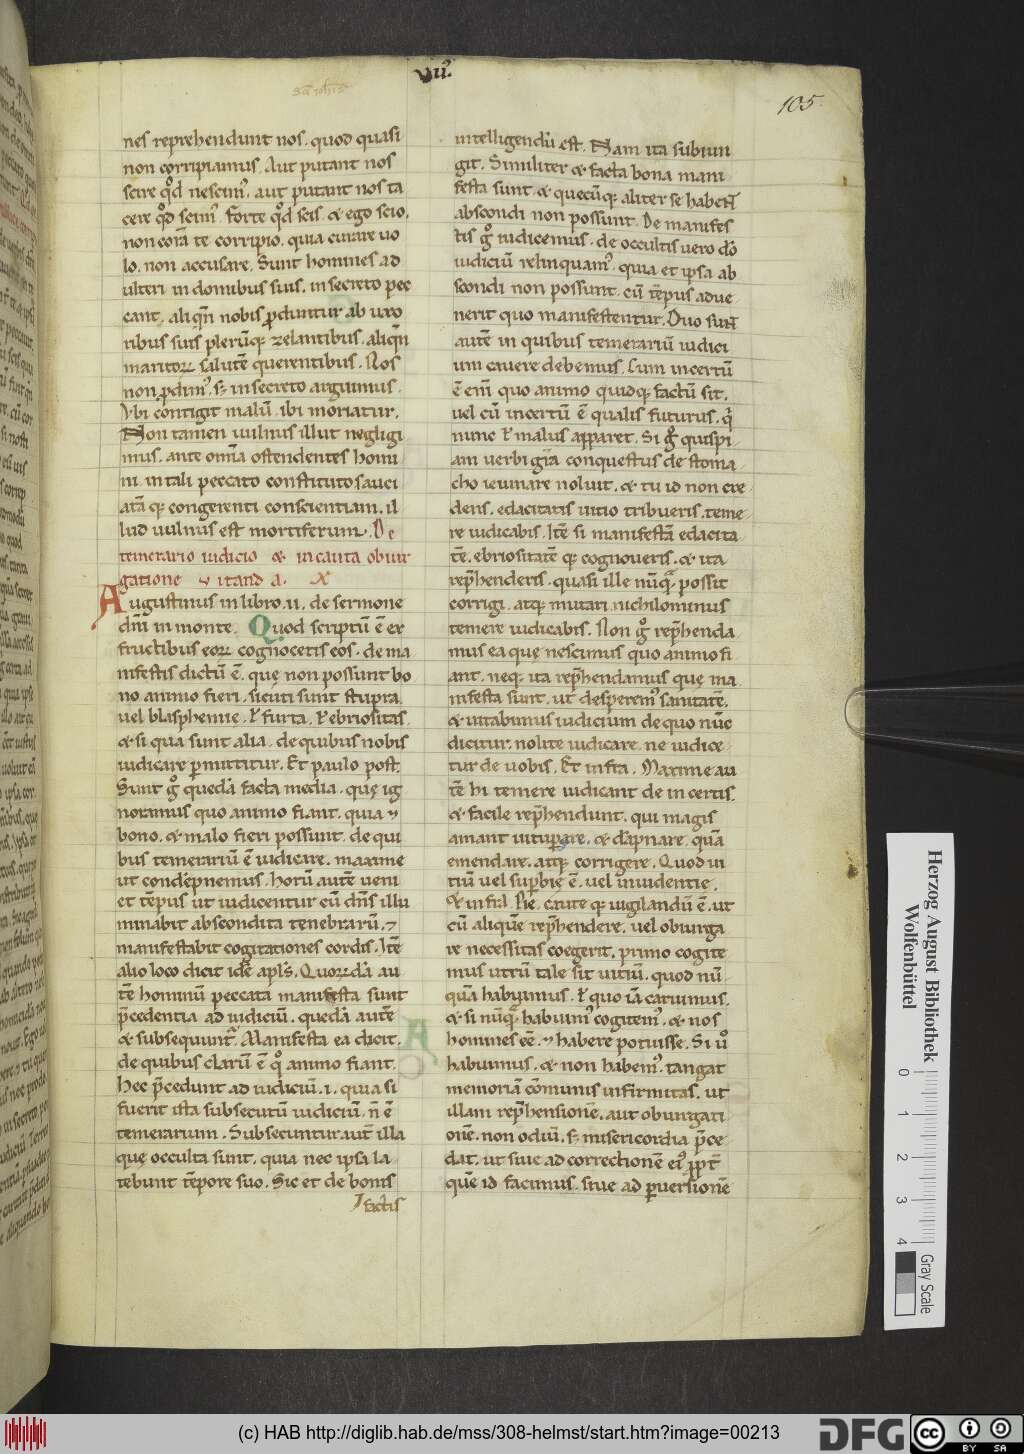 VII
105
nes reprehendunt nos. quod quasi
non corripiamus. Aut putant nos
scire qd̄ nescim᷒. aut putant nos ta
cere qd̄ scim᷒. forte qd̄ scis. & ego scio.
non corā te corripio. quia curare uo
lo. non accusare. Sunt homines ad
ulteri in domibus suis. in secreto pec
cant. aliqn̄ nobis ꝓduntur ab uxo
ribus suis plerūq; zelantibus. aliqn̄
maritoꝝ salutē querentibus. Nos
non ꝓdim᷒. sꝫ in secreto arguimus.
Vbi contigit malū. ibi moriatur.
Non tamen uulnus illut negligi
mus. ante om̄a ostendentes homi
ni in tali peccato constituto sauci
atā q; congerenti conscientiam. il
lud uulnus est mortiferum. De
temerario iudicio & incauta obiur
gatione uitanda. X
Augustinus in libro .ii. de sermone
dn̄i in monte. Quod scriptū ē ex
fructibus eoꝝ cognoscetis eos. de ma
nifestis dictū ē. quę non possunt bo
no animo fieri. sicuti sunt stupra.
uel blasphemie. ł furta. ł ebriositas.
& si qua sunt alia. de quibus nobis
iudicare ꝑmittitur. Et paulo post.
Sunt gͦ quedā facta media. quę ig
noramus quo animo fiant. quia ⁊
bono. & malo fieri possunt. de qui
bus temerariū ē iudicare. maxime
ut condēpnemus. Horū autē ueni
et tēpus ut iudicentur cū dn̄s illu
minabit abscondita tenebrarū. ⁊
manifestabit cogitationes cordis. Itē
alio loco dicit idē apl̄s. Quorūdā au
tē hominū peccata manifesta sunt
p̄cedentia ad iudiciū. quedā autē
& subsequunt᷑. Manifesta ea dicit.
de quibus clarū ē qͦ animo fiant.
Hec p̄cedunt ad iudiciū. i. quia si
fuerit ista subsecutū iudiciū. n̄ ē
temerarium. Subsecuntur aut̄ illa
quę occulta sunt. quia nec ipsa la
tebunt tēpore suo. Sic et de bonis
factis
intelligendū est. Nam ita subiun
git. Similiter & facta bona mani
festa sunt. & quecūq; aliter se habēt
abscondi non possunt. De manifes
tis gͦ iudicemus. de occultis uero dō
iudiciū relinquam᷒. quia et ipsa ab
scondi non possunt. cū tēpus adue
nerit quo manifestentur. Duo sunt
autē in quibus temerariū iudici
um cauere debemus. Cum incertū
ē eni᷒ quo animo quidq; factū sit.
uel cū incertū ē qualis futurus. qͥ
nunc ł malus apparet. Si gͦ quispi
am uerbi gr̄a conquestus de stoma
cho ieiunare noluit. & tu id non cre
dens. edacitatis uitio tribueris. teme
re iudicabis. Itē si manifestā edacita
tē. ebriositatē q; cognoueris. & ita
rep̄henderis. quasi ille nūq̄ possit
corrigi. atq; mutari. nichilominus
temere iudicabis. Non gͦ rep̄henda
mus ea que nescimus quo animo fi
ant. neq; ita rep̄hendamus quę ma
nifesta sunt. ut desperem᷒ sanitatē.
& uitabimus iudicium de quo nūc
dicitur. nolite iudicare. ne iudice
tur de uobis. Et infra. Maxime au
tē hi temere iudicant de incertis.
& facile rep̄hendunt. qui magis
amant uituperare. & dāpnare. quā
emendare. atq; corrigere. Quod ui
tiū uel suꝑbię ē. uel inuidentie.
& infra. Pie. caute q; uigilandū ē. ut
cū aliquē rep̄hendere. uel obiurga
re necessitas coegerit. primo cogite
mus utrū tale sit uitiū. quod nū
quā habuimus. ł quo iā caruimus.
& si nūq̄ habuim᷒ cogitem᷒. & nos
homines eē. ⁊ habere potuisse. Si uͦ
habuimus. & non habem᷒. tangat
memoriā cōmunis infirmitas. ut
illam rep̄hensionē. aut obiurgati
onē. non odiū. sꝫ misericordia p̄ce
dat. ut siue ad correctionē ei᷒ ꝓpt̄
quē id facimus. siue ad ꝑuersionē
Herzog August Bibliothek
Wolfenbüttel
0 1 2 3 4
Gray Scale
(c) HAB http://diglib.hab.de/mss/308-helmst/start.htm?image=00213
DFG
cc BY SA